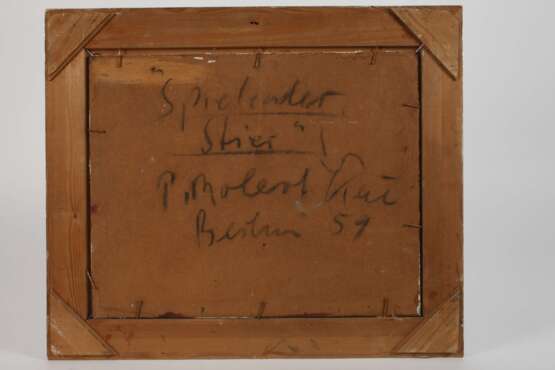 "Spielender
Stier"
P. Robert
Berlin 59